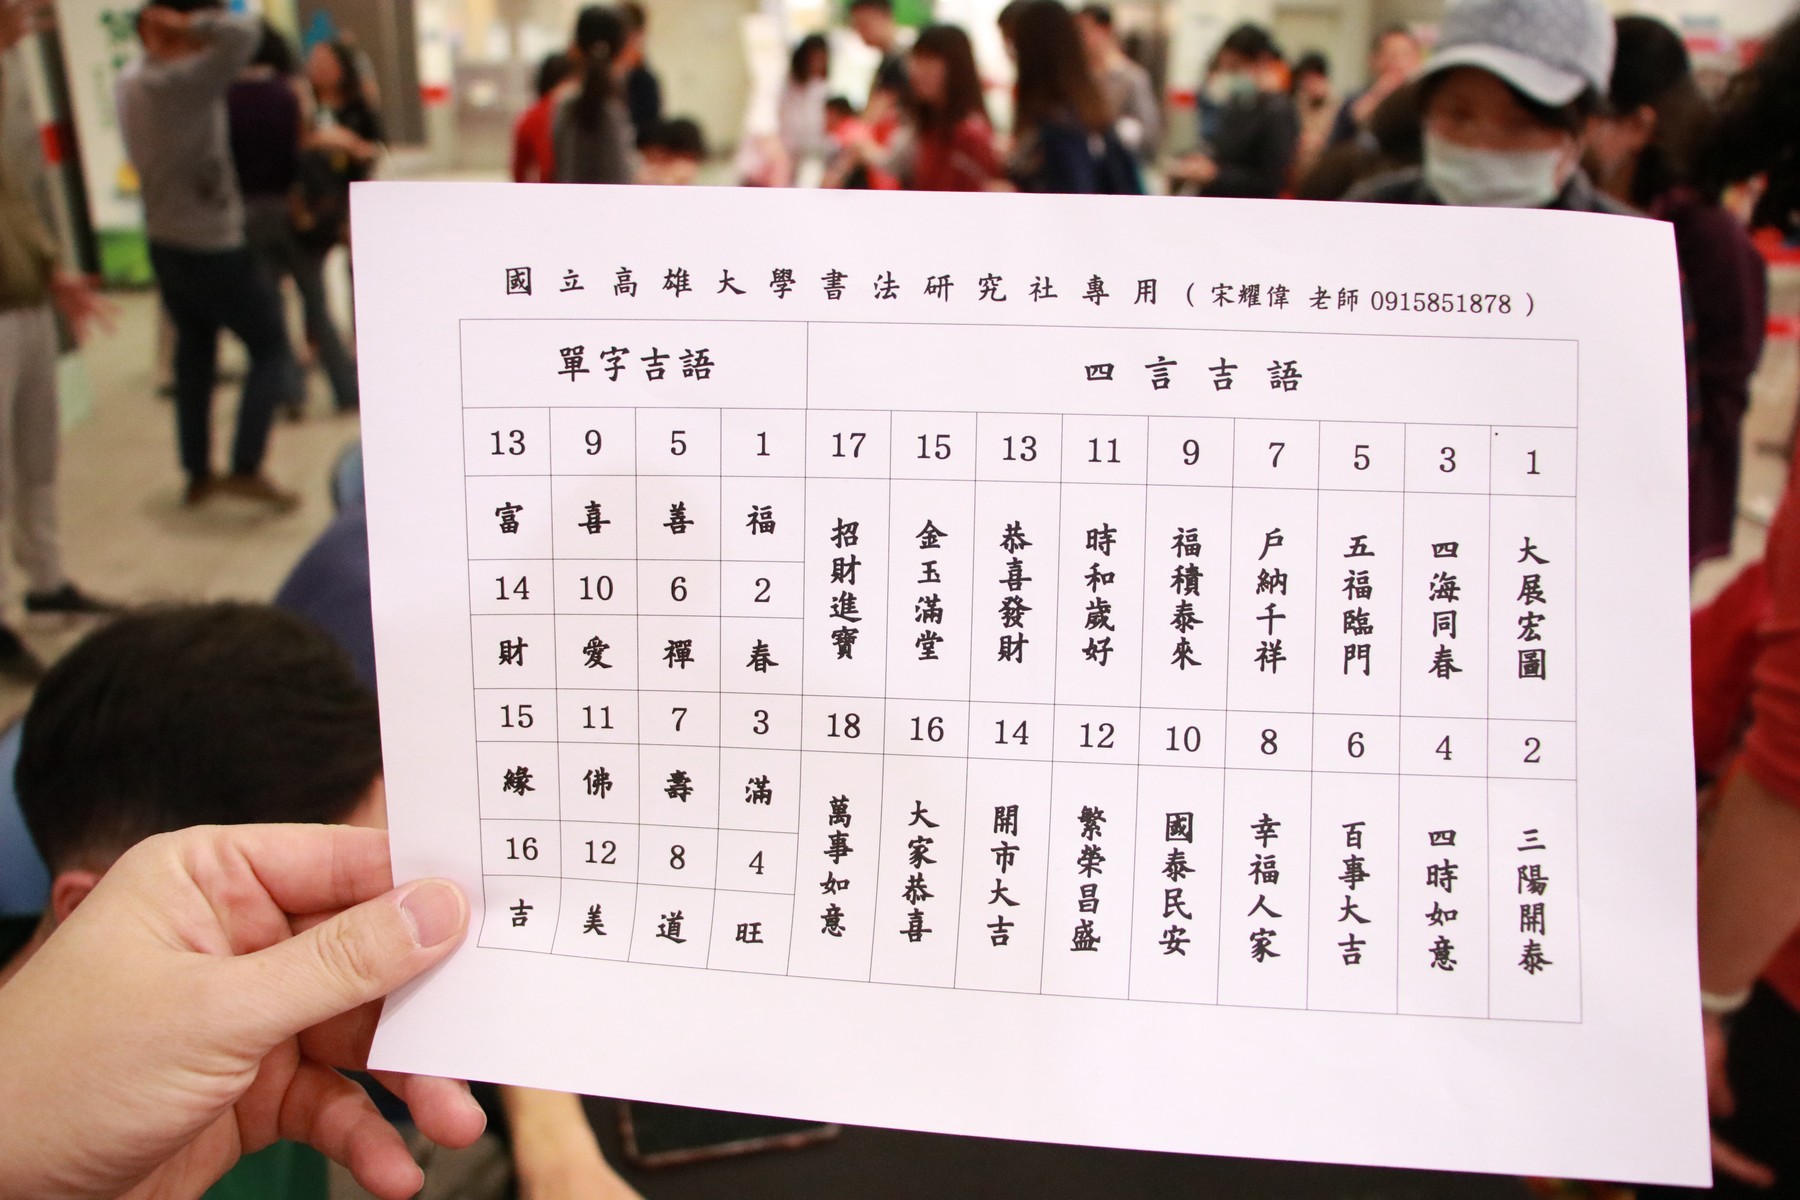 國立高雄大學書法研究社專用(宋耀偉 老師 0915851878)
單字吉語 四言吉語
13 9 5 1 17 15 13 11 9 7 5 3 1
富 喜 善 福 招財進寶 金玉滿堂 恭喜發財 時和歲好 福積泰來 戶納千祥 五福臨門 四海同春 大展宏圖
14 10 6 2
財 愛 禪 春
15 11 7 3 18 16 14 12 10 8 6 4 2
緣 佛 壽 滿 萬事如意 大家恭喜 開市大吉 繁榮昌盛 國泰民安 幸福人家 百事大吉 四時如意 三陽開泰
16 12 8 4
吉 美 道 旺